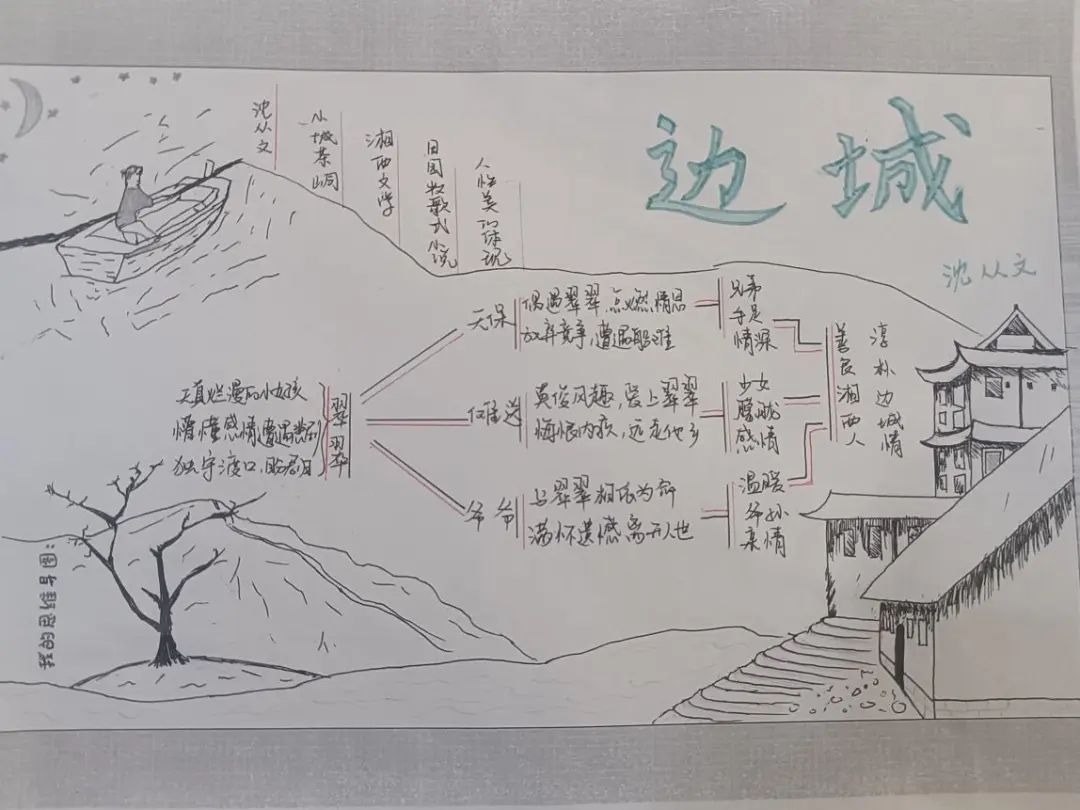 边城
沈从文
沈从文
小城茶峒
湘西文学
田园牧歌式小说
人性美的体现
天真烂漫的小女孩
懵懂感情(遭遇挫折)
独守渡口,盼君归
翠翠
天保
偶遇翠翠,点燃情思
放弃竞争,遭遇船难
兄弟
手足
情深
傩送
英俊风趣,爱上翠翠
悔恨内疚,远走他乡
少女
朦胧
感情
爷爷
与翠翠相依为命
满怀遗憾离开人世
温暖
爷孙
亲情
善良湘西人
淳朴边城情
我的思维导图: